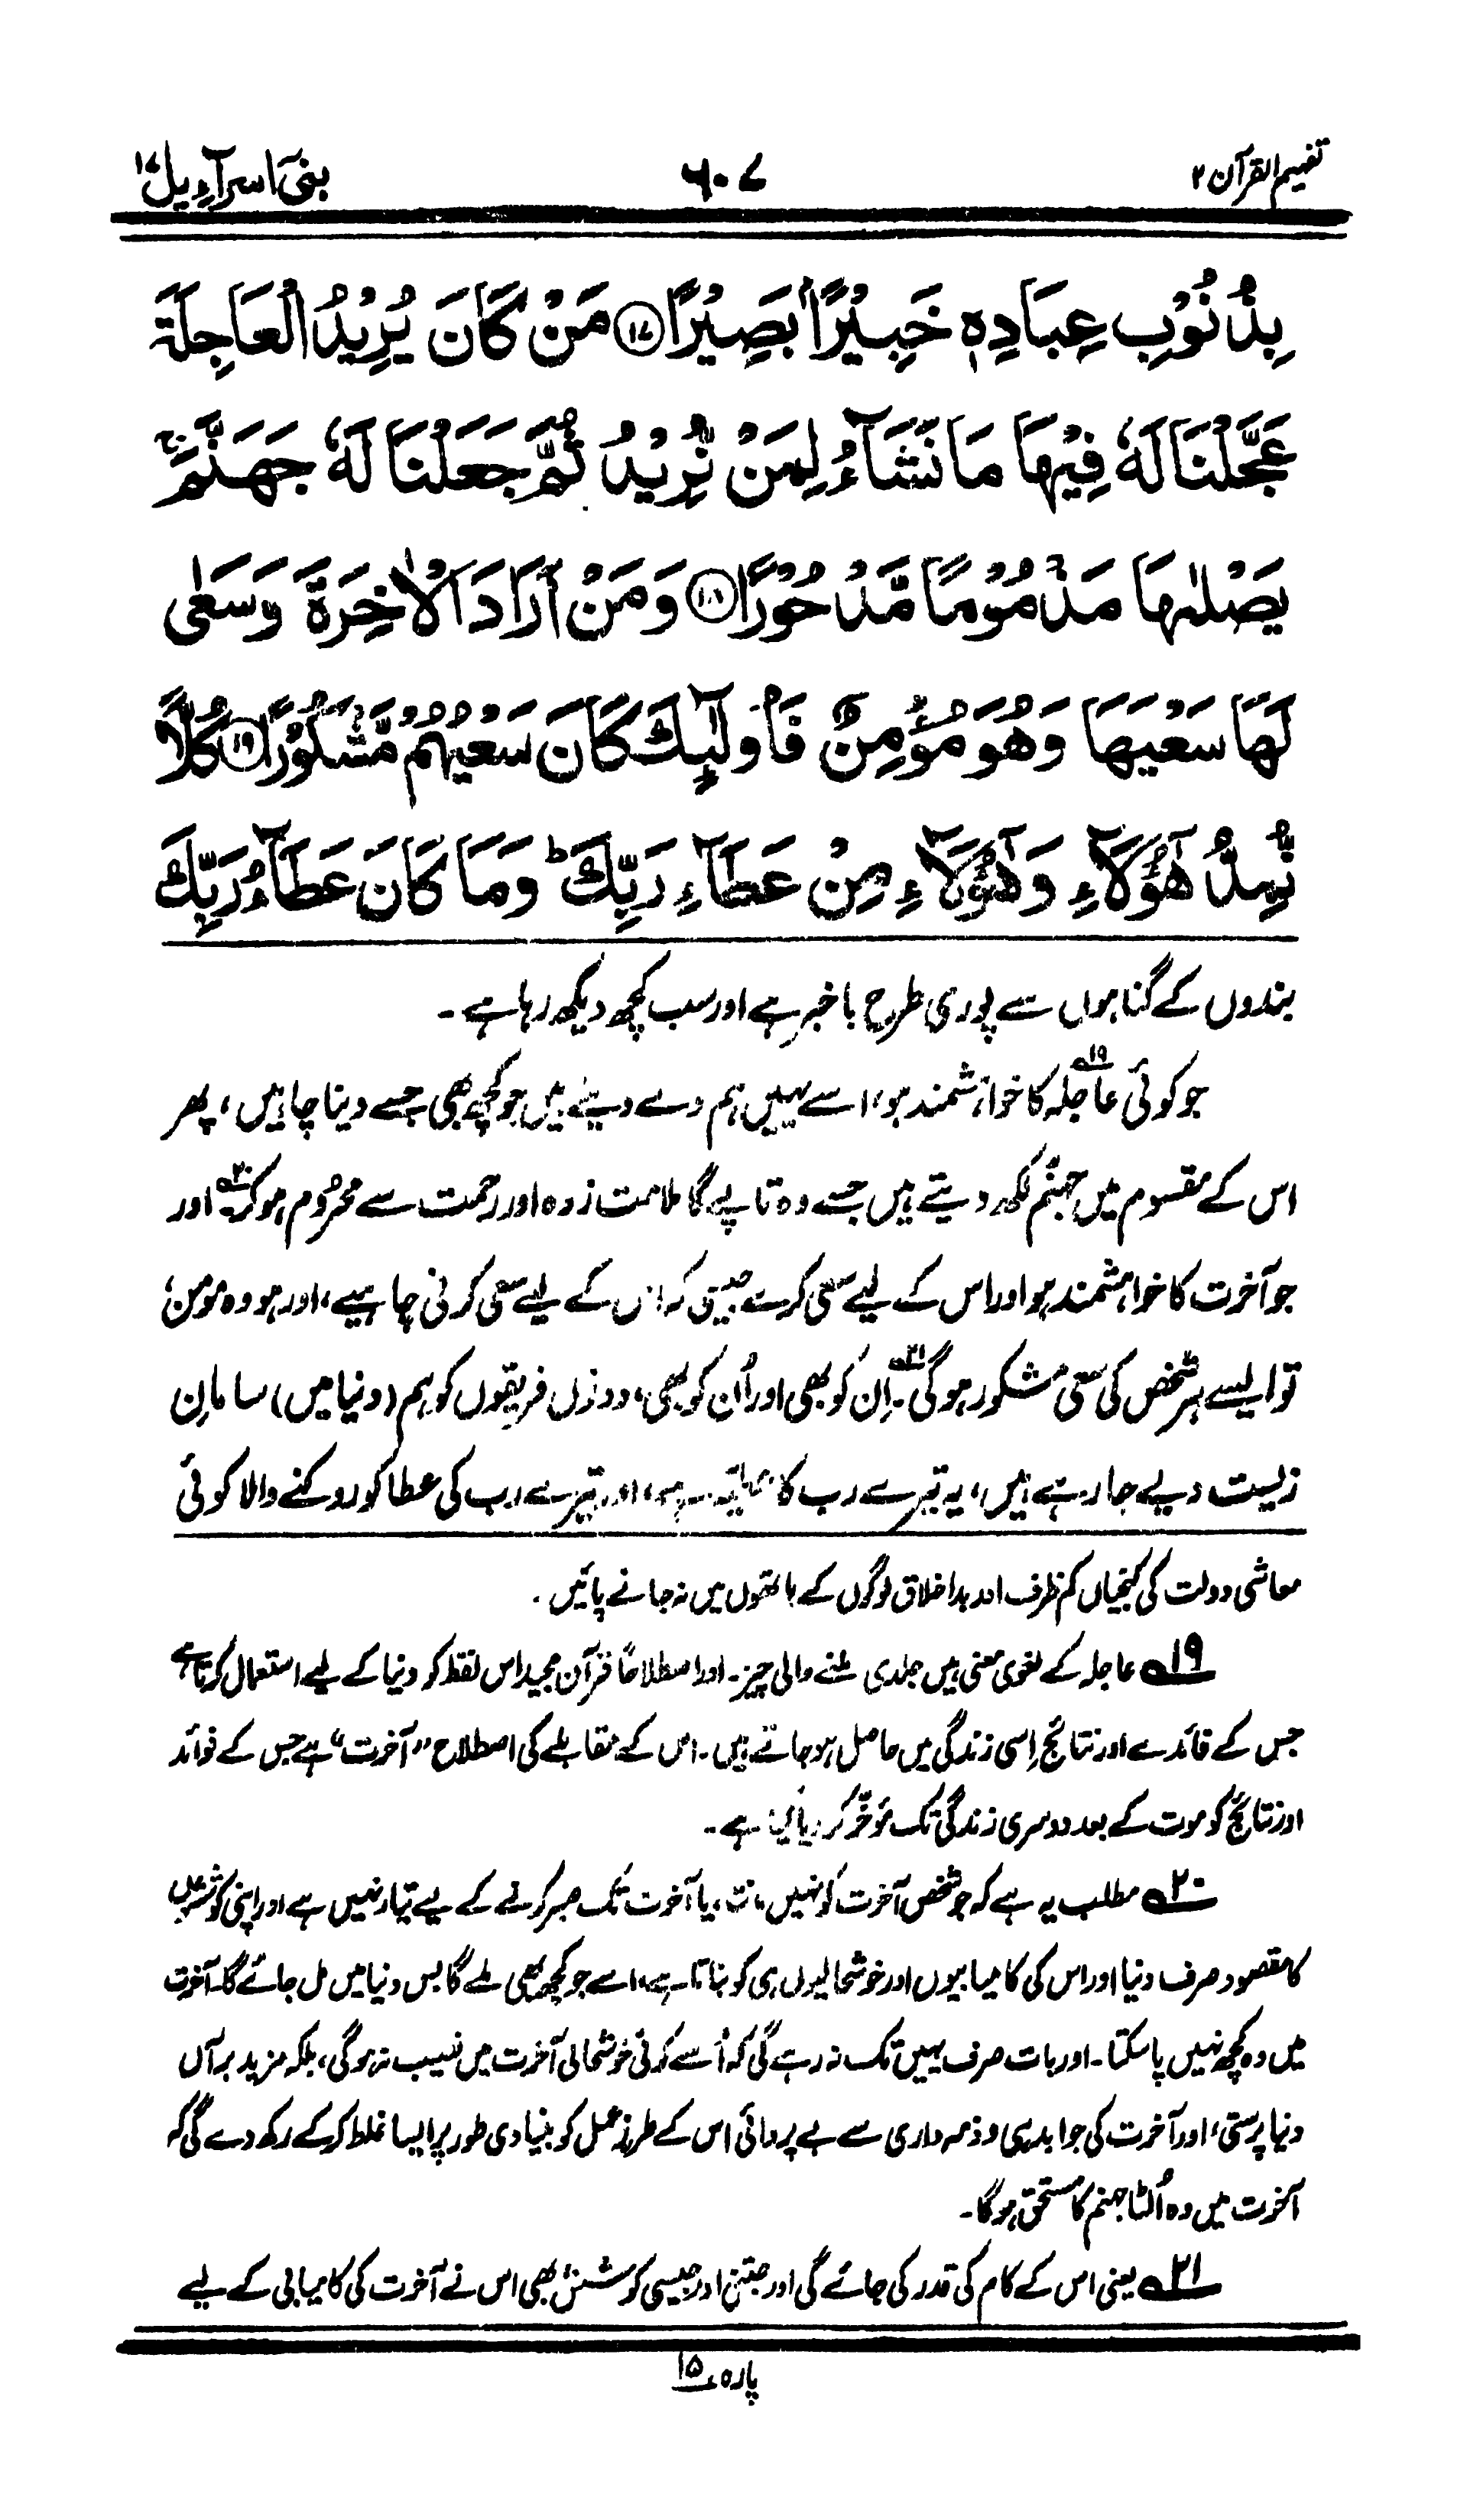 تفہیم القرآن ۲
۶۰۷
بنی اسرآءیل ۱۷
بِذُنُوْبِ عِبَادِهٖ خَبِيْرًۢا بَصِيْرًا ⑰ مَنْ كَانَ يُرِيْدُ الْعَاجِلَةَ
عَجَّلْنَا لَهٗ فِيْهَا مَا نَشَآءُ لِمَنْ نُّرِيْدُ ثُمَّ جَعَلْنَا لَهٗ جَهَنَّمَ ۚ
يَصْلٰىهَا مَذْمُوْمًا مَّدْحُوْرًا ⑱ وَمَنْ اَرَادَ الْاٰخِرَةَ وَسَعٰى
لَهَا سَعْيَهَا وَهُوَ مُؤْمِنٌ فَاُولٰٓئِكَ كَانَ سَعْيُهُمْ مَّشْكُوْرًا ⑲ كُلًّا
نُّمِدُّ هٰٓؤُلَآءِ وَهٰٓؤُلَآءِ مِنْ عَطَآءِ رَبِّكَ ؕ وَمَا كَانَ عَطَآءُ رَبِّكَ
بندوں کے گناہوں سے پوری طرح باخبر ہے اور سب کچھ دیکھ رہا ہے۔
جو کوئی عاجلہ ۱۹؎ کا خواہشمند ہو، اسے یہیں ہم دے دیتے ہیں جو کچھ بھی جسے دینا چاہیں، پھر
اس کے مقسوم میں جہنّم لکھ دیتے ہیں جسے وہ تاپے گا ملامت زدہ اور رحمت سے محرُوم ہو کر ۲۰؎۔ اور
جو آخرت کا خواہشمند ہو اور اس کے لیے سعی کرے جیسی کہ اس کے لیے سعی کرنی چاہیے، اور ہو وہ مومن،
تو ایسے ہر شخص کی سعی مشکور ہوگی ۲۱؎۔ اِن کو بھی اور اُن کو بھی، دونوں فریقوں کو ہم (دنیا میں) سامانِ
زیست دیے جا رہے ہیں، یہ تیرے رب کا عطیّہ ہے، اور تیرے رب کی عطا کو روکنے والا کوئی
معاشی دولت کی کنجیاں کم ظرف اور بد اخلاق لوگوں کے ہاتھوں میں نہ جانے پائیں۔
۱۹؎ عاجلہ کے لغوی معنی ہیں جلدی ملنے والی چیز۔ اور اصطلاحًا قرآن مجید اس لفظ کو دنیا کے لیے استعمال کرتا ہے
جس کے فائدے اور نتائج اِسی زندگی میں حاصل ہو جاتے ہیں۔ اس کے مقابلے کی اصطلاح ”آخرت“ ہے جس کے فوائد
اور نتائج کو موت کے بعد دوسری زندگی تک مؤخّر کر دیا گیا ہے۔
۲۰؎ مطلب یہ ہے کہ جو شخص آخرت کو نہیں مانتا، یا آخرت تک صبر کرنے کے لیے تیار نہیں ہے اور اپنی کوششوں
کا مقصود صرف دنیا اور اس کی کامیابیوں اور خوشحالیوں ہی کو بناتا ہے، اسے جو کچھ بھی ملے گا بس دنیا میں مل جائے گا۔ آخرت
میں وہ کچھ نہیں پا سکتا۔ اور بات صرف یہیں تک نہ رہے گی کہ اُسے کوئی خوشحالی آخرت میں نصیب نہ ہوگی، بلکہ مزید برآں
دنیا پرستی، اور آخرت کی جوابدہی و ذمہ داری سے بے پروائی اس کے طرزِ عمل کو بنیادی طور پر ایسا غلط کر کے رکھ دے گی کہ
آخرت میں وہ اُلٹا جہنم کا مستحق ہوگا۔
۲۱؎ یعنی اس کے کام کی قدر کی جائے گی اور جتنی اور جیسی کوشش بھی اس نے آخرت کی کامیابی کے لیے
پارہ ۱۵